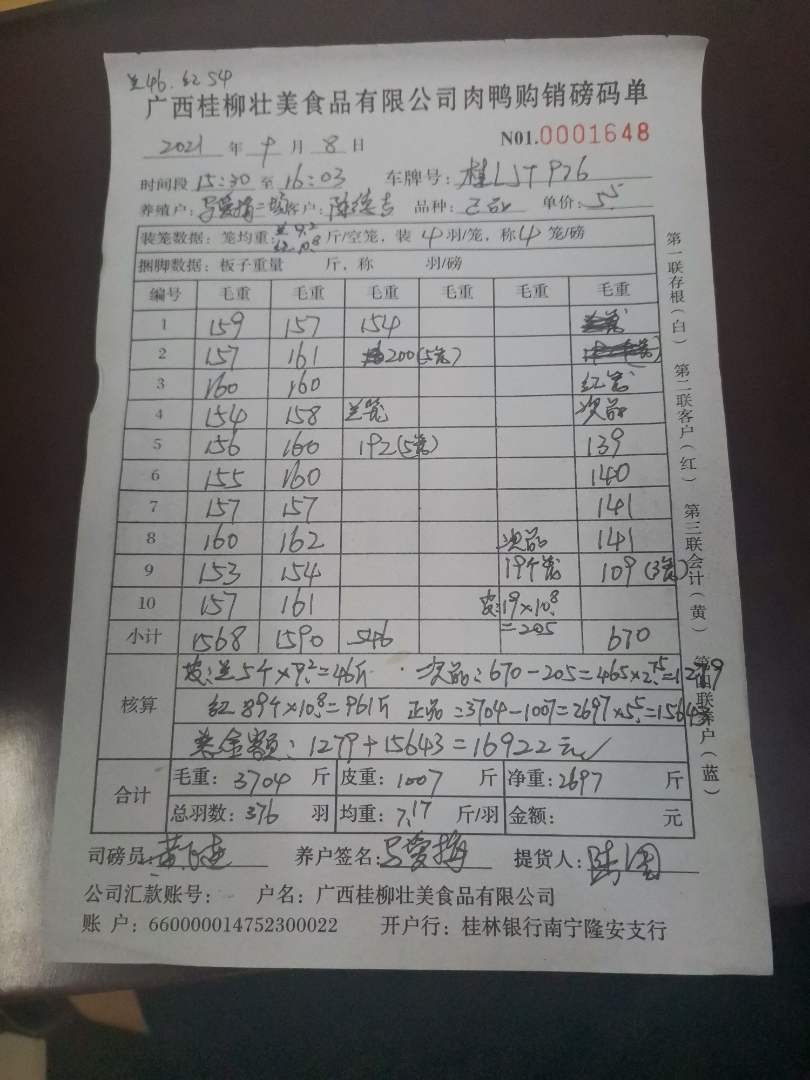 兰46.红54
广西桂柳壮美食品有限公司肉鸭购销磅码单
2021 年 9 月 8 日 N01.0001648
时间段 15:30 至 16:03 车牌号: 桂LJT976
养殖户: 二场 客户: 陈德志 品种: 单价: 5.5
装笼数据: 笼均重: 兰9.2 红10.8 斤/空笼, 装 4 羽/笼, 称 4 笼/磅
捆脚数据: 板子重量 斤, 称 羽/磅
编号 毛重 毛重 毛重 毛重 毛重 毛重
1 159 157 154
2 157 161 200(5笼)
3 160 160 红笼
4 154 158 兰笼 次品
5 156 160 192(5笼) 139
6 155 160 140
7 157 157 141
8 160 162 次品 141
9 153 154 19个笼 109(3笼)
10 157 161 皮:19×10.8
小计 1568 1590 546 =205 670
核算 皮:兰5个×9.2=46斤 · 次品:670-205=465×2.75=1279
红89个×10.8=961斤 正品:3704-1007=2697×5.5=15643
总金额:1279+15643=16922元
合计 毛重: 3704 斤 皮重: 1007 斤 净重: 2697 斤
总羽数: 376 羽 均重: 7.17 斤/羽 金额: 元
司磅员: 养户签名: 提货人:
公司汇款账号: 户名: 广西桂柳壮美食品有限公司
账 户: 660000014752300022 开户行: 桂林银行南宁隆安支行
第一联存根(白) 第二联客户(红) 第三联会计(黄) 第四联养户(蓝)